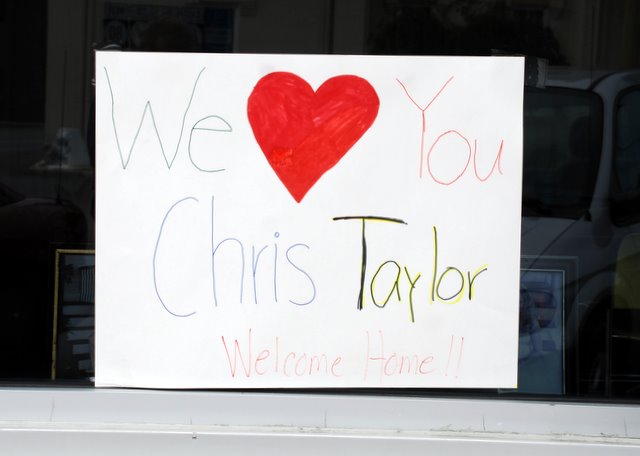 We ❤ You
Chris Taylor
Welcome Home!!